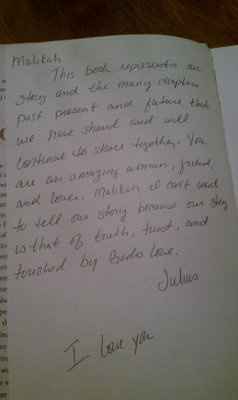 Malikah
This book represents our
story and the many chapters
past present and future that
we have shared and will
continue to share together. You
are an amazing woman, friend,
and lover. Malikah I can't wait
to tell our story because our story
is that of truth, trust, and
touched by God's love.
Julius
I love you